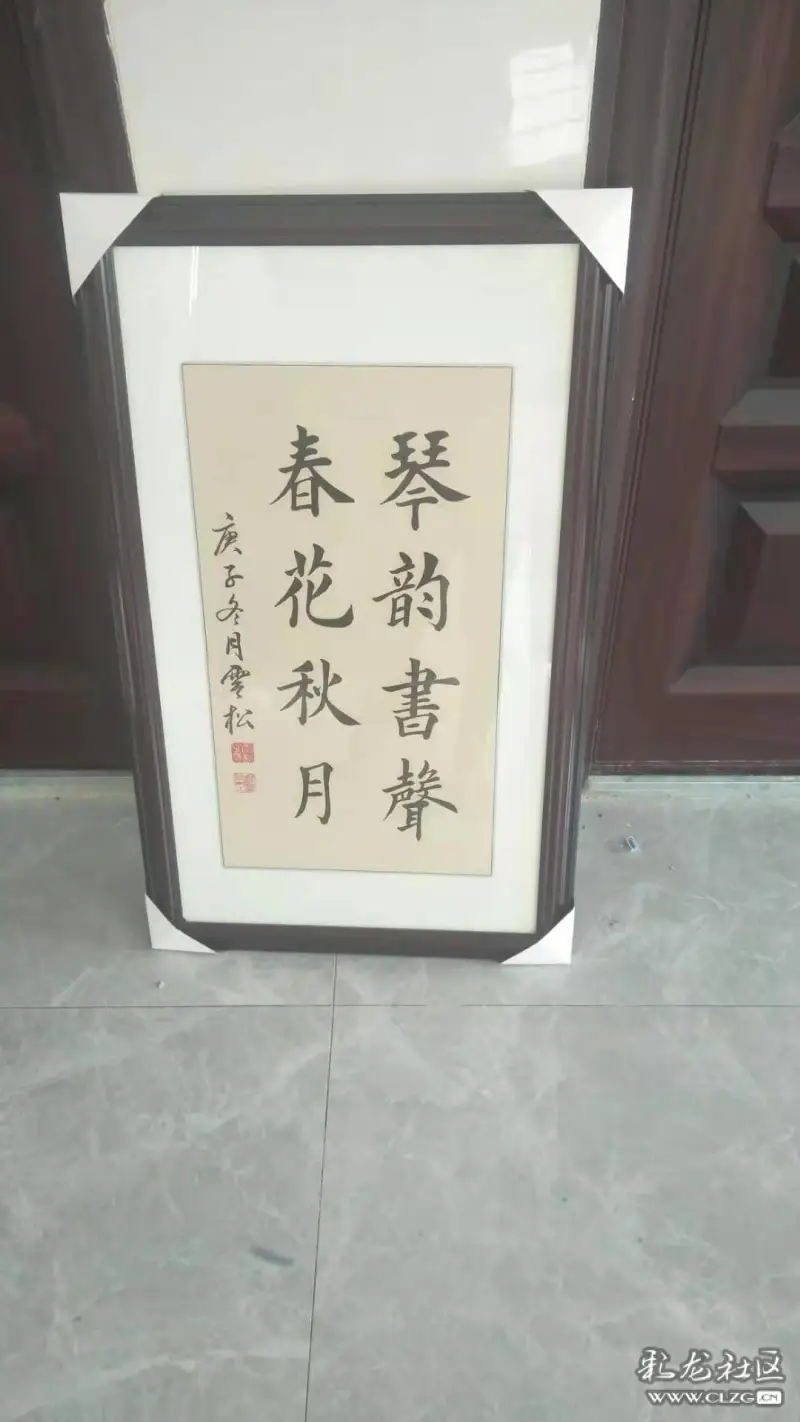 琴韵書聲
春花秋月
庚子冬月雲松
彩龙社区
WWW.CLZG.CN